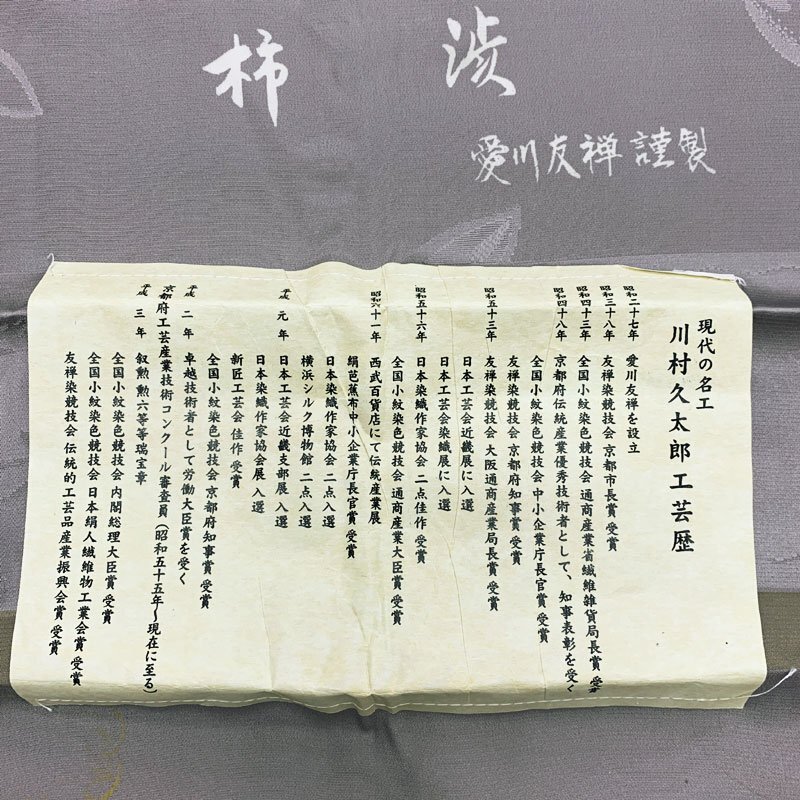 柿渋
愛川友禅謹製
現代の名工
川村久太郎工芸歴
昭和二十七年 愛川友禅を設立
昭和三十八年 友禅染競技会 京都市長賞 受賞
昭和四十三年 全国小紋染色競技会 通商産業省繊維雑貨局長賞 受賞
昭和四十八年 京都府伝統産業優秀技術者として、知事表彰を受く
全国小紋染色競技会 中小企業庁長官賞 受賞
友禅染競技会 京都府知事賞 受賞
昭和五十三年 友禅染競技会 大阪通商産業局長賞 受賞
日本工芸会染織展に入選
日本工芸会近畿展に入選
昭和五十六年 日本染織作家協会 二点佳作 受賞
全国小紋染色競技会 通商産業大臣賞 受賞
昭和六十一年 西武百貨店にて伝統産業展
絹芭蕉布中小企業庁長官賞 受賞
日本染織作家協会 二点入選
横浜シルク博物館 二点入選
平成 元年 日本工芸会近畿支部展 入選
日本染織作家協会展 入選
新匠工芸会 佳作 受賞
全国小紋染色競技会 京都府知事賞 受賞
平成 二年 卓越技術者として労働大臣賞を受く
京都府工芸産業技術コンクール審査員(昭和五十五年~現在に至る)
平成 三年 叙勲 勲六等等瑞宝章
全国小紋染色競技会 内閣総理大臣賞 受賞
全国小紋染色競技会 日本絹人繊維物工業会賞 受賞
友禅染競技会 伝統的工芸品産業振興会賞 受賞